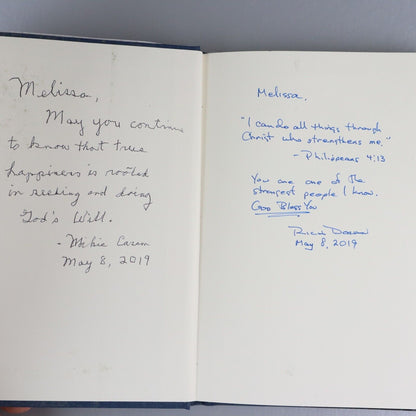 Melissa,
May you continue
to know that true
happiness is rooted
in seeking and doing
God's Will.
May 8, 2019
Melissa,
"I can do all things through
Christ who strengthens me."
- Philippians 4:13
You are one of the
strongest people I know.
God Bless You
May 8, 2019